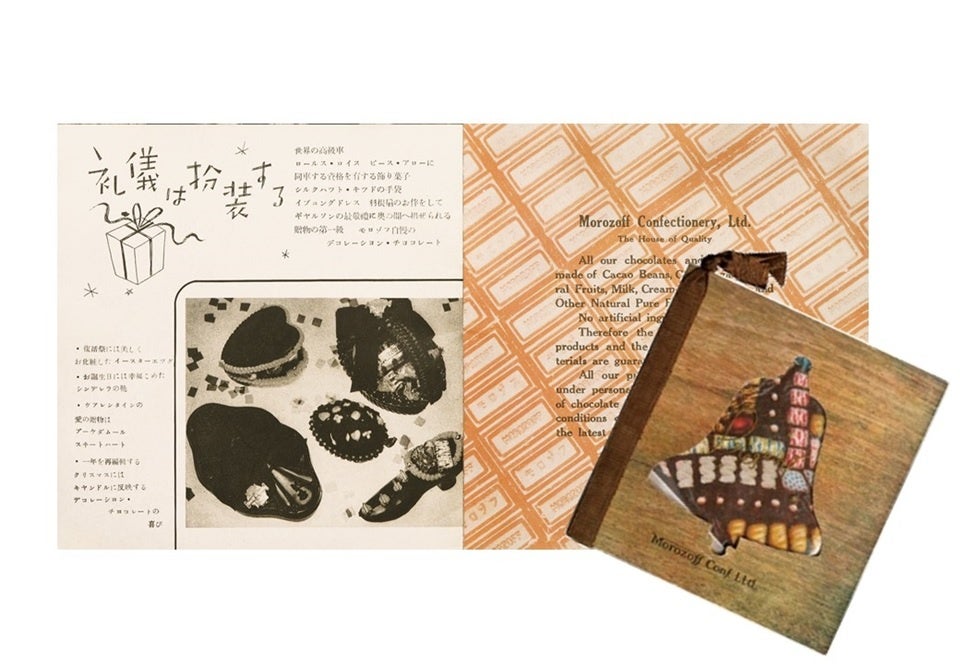 礼儀は扮装する
世界の高級車
ロールス・ロイス ピース・アローに
同車する資格を有する飾り菓子
シルクハット・キツドの手袋
イブニングドレス 羽根扇のお伴をして
ギヤルソンの最敬禮に奥の間へ招ぜられる
贈物の第一級 モロゾフ自慢の
デコレーシヨン・チヨコレート
・復活祭には美しく
お化粧したイースターエツグ
・お誕生日には幸福こめた
シンデレラの靴
・ヴアレンタインの
愛の贈物は
アーケダムール
スヰートハート
・一年を再編輯する
クリスマスには
キヤンドルに反映する
デコレーシヨン・
チヨコレートの
喜び
Morozoff Confectionery, Ltd.
The House of Quality
All our chocolates and
made of Cacao Beans,
ral Fruits, Milk, Cream
and
Other Natural Pure
No artificial
Therefore the
products and the
terials are
All our
under
of chocolate
conditions
the latest
Morozoff Conf Ltd.